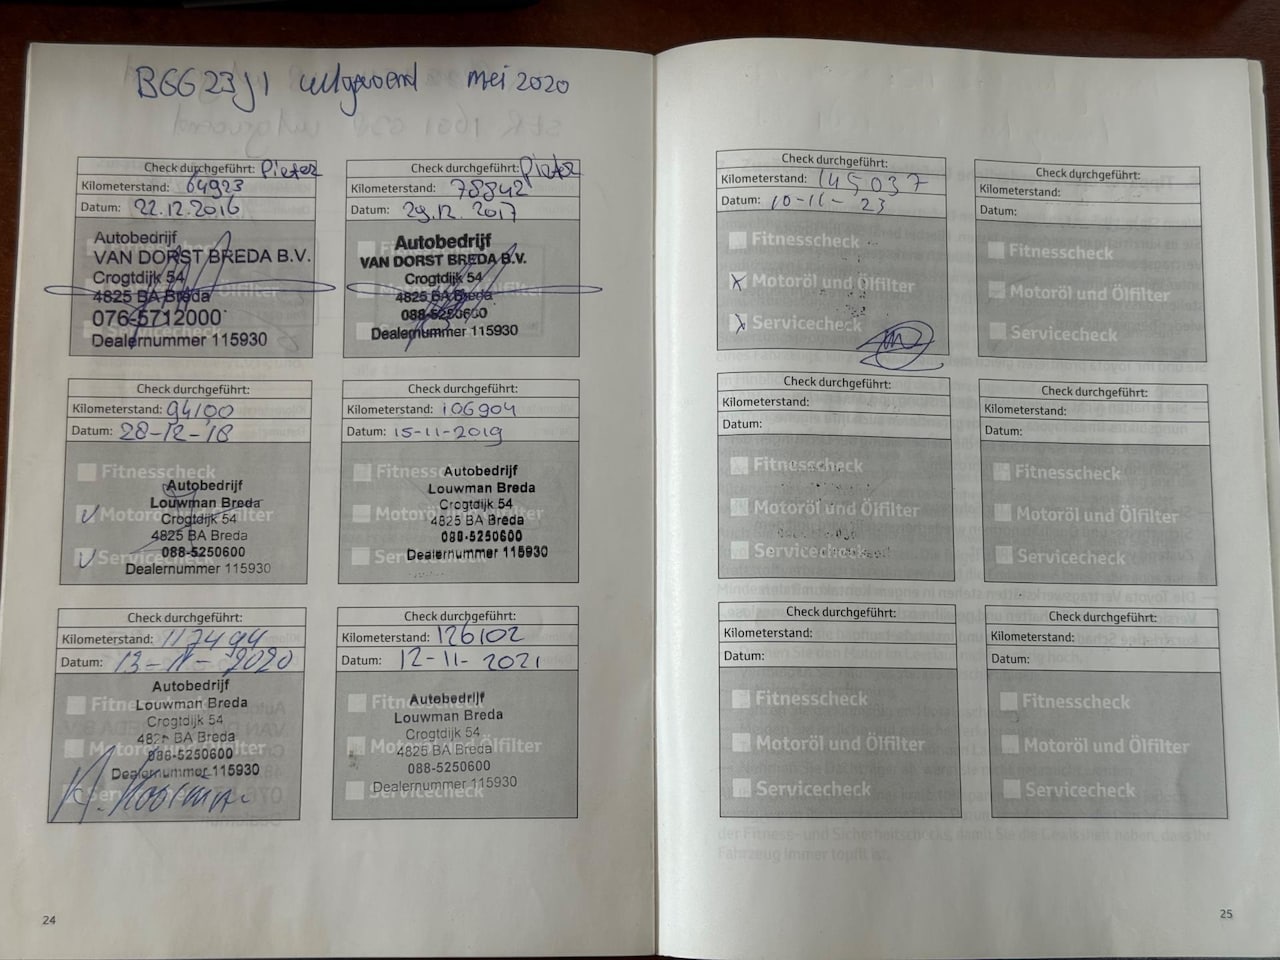 BGG23J1 uitgevoerd mei 2020
Check durchgeführt: Pieter
Kilometerstand: 64923
Datum: 22.12.2016
Autobedrijf
VAN DORST BREDA B.V.
Crogtdijk 54
4825 BA Breda
076-5712000
Dealernummer 115930
Check durchgeführt: Pieter
Kilometerstand: 78842
Datum: 29.12.2017
Autobedrijf
VAN DORST BREDA B.V.
Crogtdijk 54
4825 BA Breda
088-5250600
Dealernummer 115930
Check durchgeführt:
Kilometerstand: 94100
Datum: 28-12-'18
Fitnesscheck
Motoröl und Ölfilter
Servicecheck
Autobedrijf
Louwman Breda
Crogtdijk 54
4825 BA Breda
088-5250600
Dealernummer 115930
Check durchgeführt:
Kilometerstand: 106904
Datum: 15-11-2019
Fitnesscheck
Motoröl und Ölfilter
Servicecheck
Autobedrijf
Louwman Breda
Crogtdijk 54
4825 BA Breda
088-5250600
Dealernummer 115930
Check durchgeführt:
Kilometerstand: 117494
Datum: 13-11-2020
Fitnesscheck
Motoröl und Ölfilter
Servicecheck
Autobedrijf
Louwman Breda
Crogtdijk 54
4825 BA Breda
088-5250600
Dealernummer 115930
Check durchgeführt:
Kilometerstand: 126102
Datum: 12-11-2021
Fitnesscheck
Motoröl und Ölfilter
Servicecheck
Autobedrijf
Louwman Breda
Crogtdijk 54
4825 BA Breda
088-5250600
Dealernummer 115930
24
Check durchgeführt:
Kilometerstand: 145037
Datum: 10-11-23
Fitnesscheck
Motoröl und Ölfilter
Servicecheck
Check durchgeführt:
Kilometerstand:
Datum:
Fitnesscheck
Motoröl und Ölfilter
Servicecheck
Check durchgeführt:
Kilometerstand:
Datum:
Fitnesscheck
Motoröl und Ölfilter
Servicecheck
Check durchgeführt:
Kilometerstand:
Datum:
Fitnesscheck
Motoröl und Ölfilter
Servicecheck
Check durchgeführt:
Kilometerstand:
Datum:
Fitnesscheck
Motoröl und Ölfilter
Servicecheck
Check durchgeführt:
Kilometerstand:
Datum:
Fitnesscheck
Motoröl und Ölfilter
Servicecheck
25